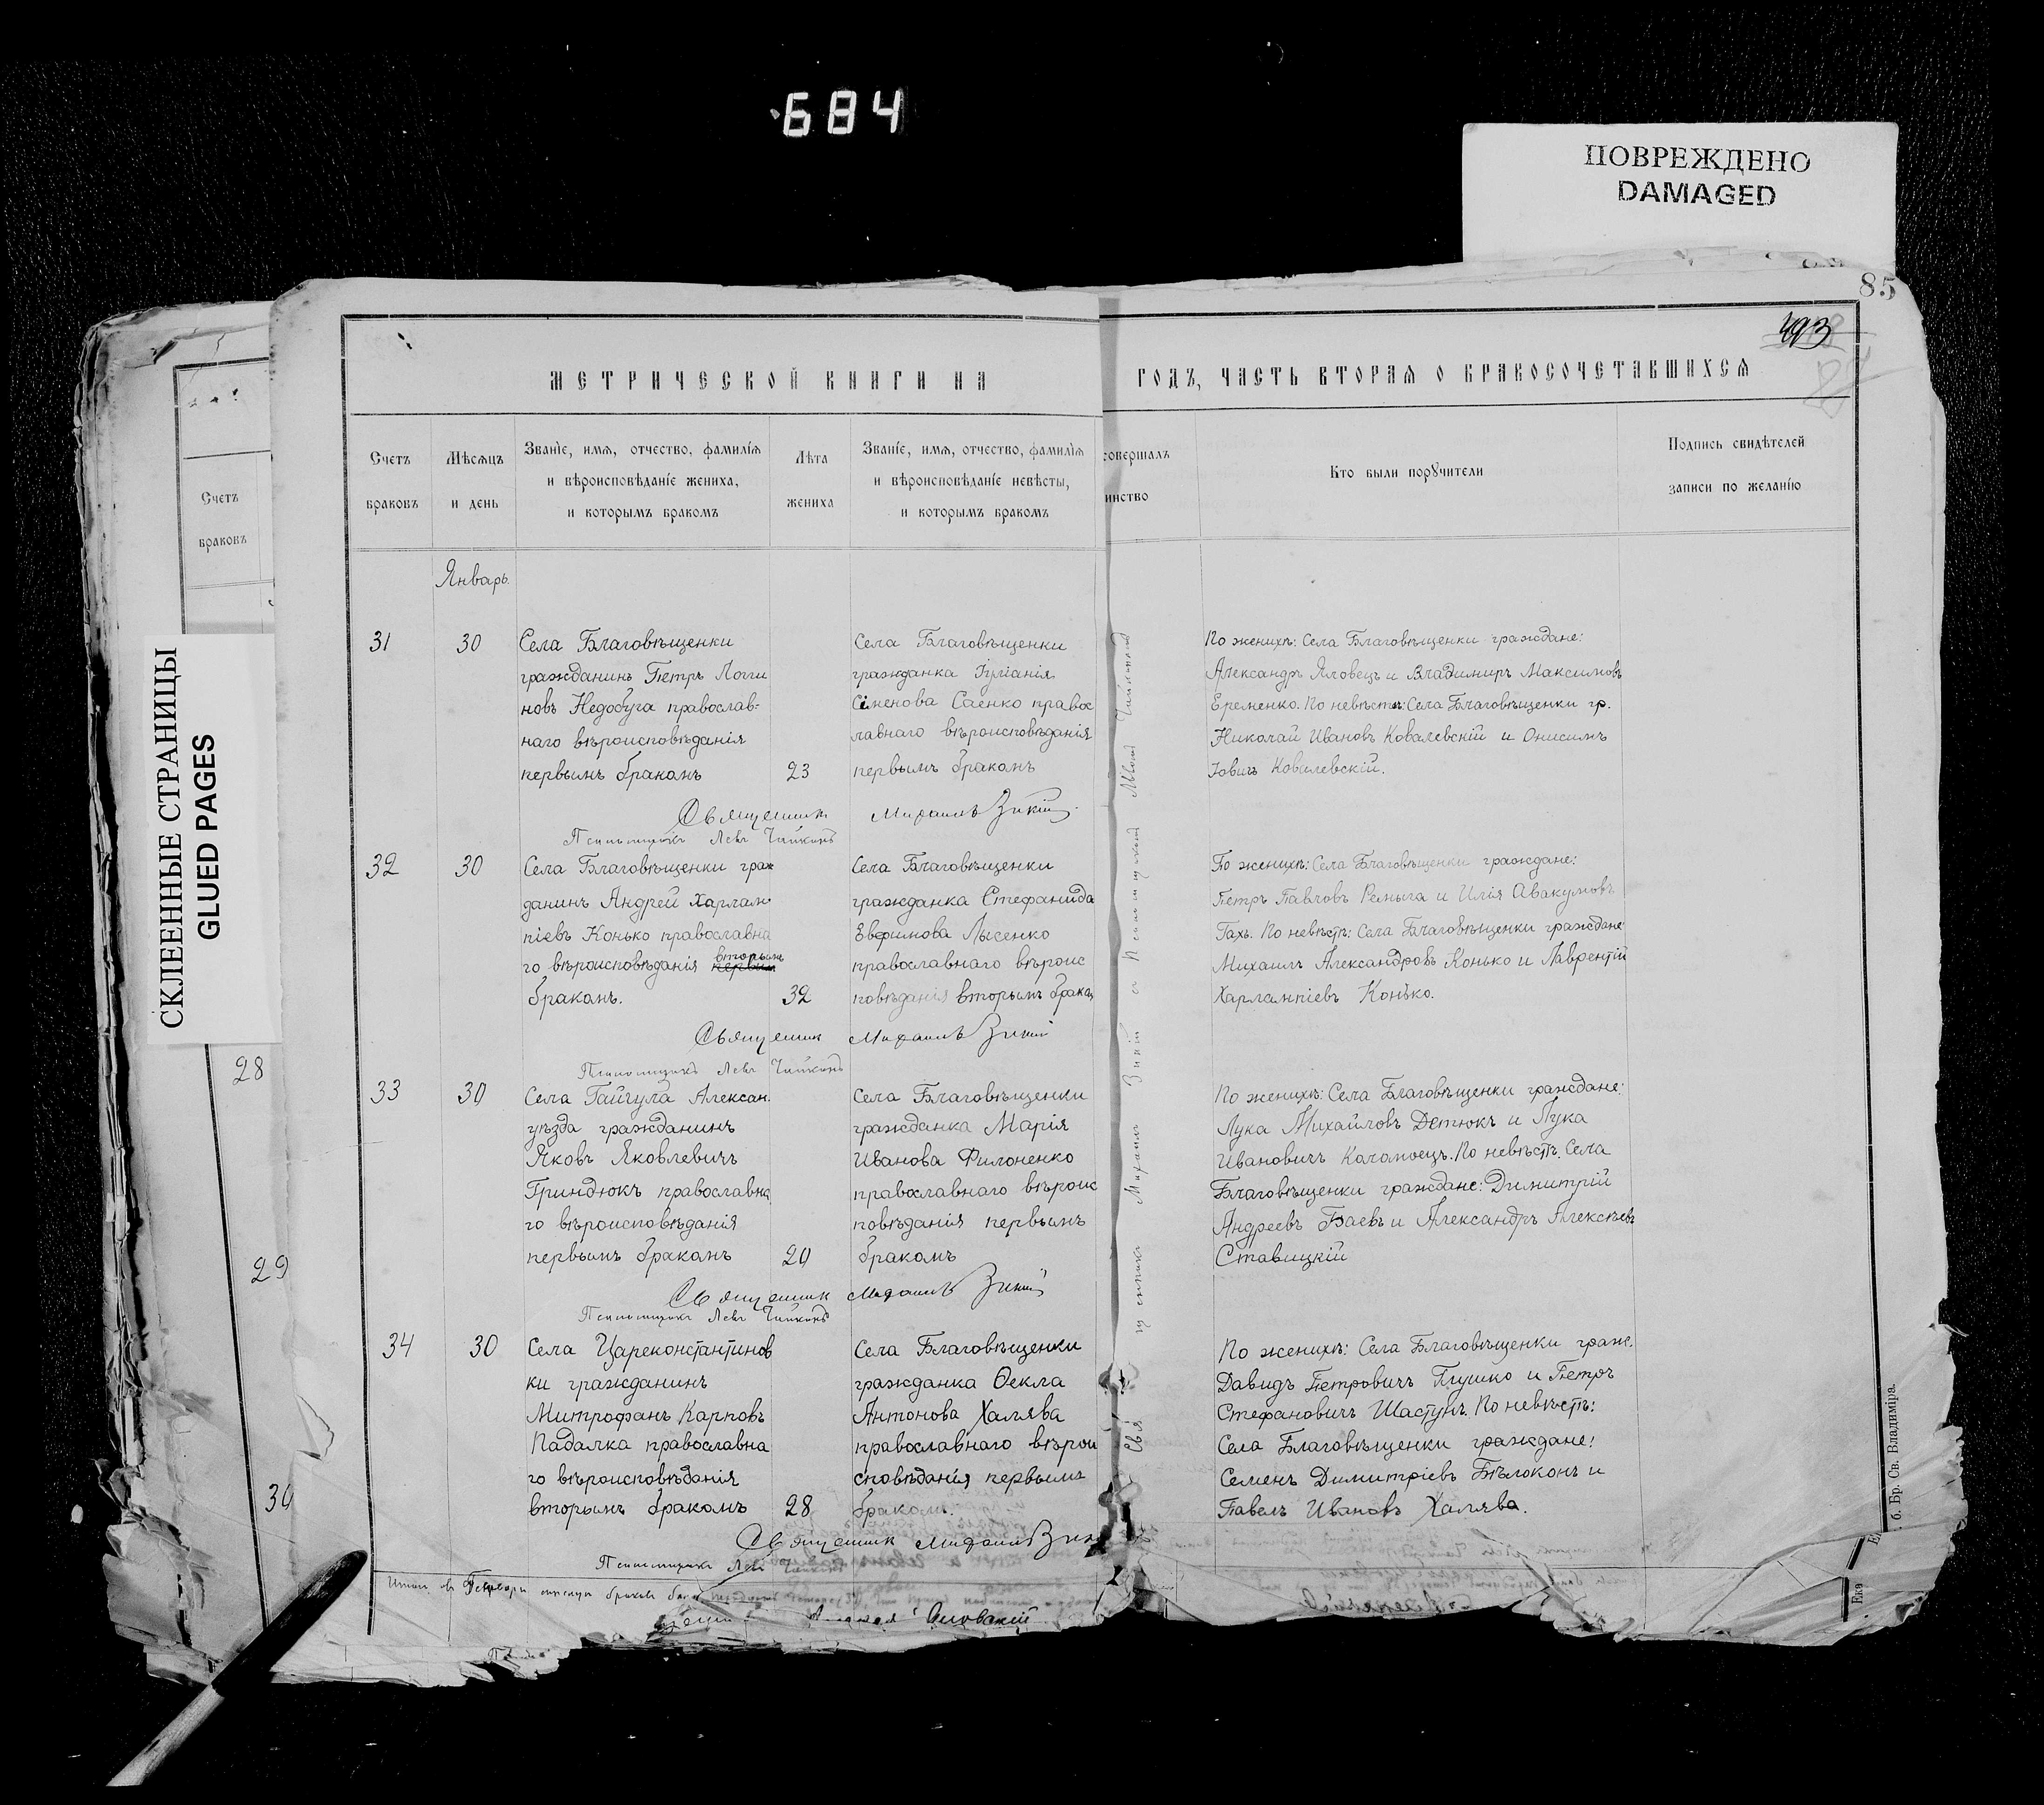 684
ПОВРЕЖДЕНО
DAMAGED
85
493
СКЛЕЕННЫЕ СТРАНИЦЫ
GLUED PAGES
Счетъ
браковъ
28
29
30
МЕТРИЧЕСКОЙ КНИГИ НА
ГОДЪ, ЧАСТЬ ВТОРАЯ О БРАКОСОЧЕТАВШИХСЯ
Счетъ
браковъ
Мѣсяцъ
и день
Званіе, имя, отчество, фамилія
и вѣроисповѣданіе жениха,
и которымъ бракомъ
Лѣта
жениха
Званіе, имя, отчество, фамилія
и вѣроисповѣданіе невѣсты,
и которымъ бракомъ
совершалъ
инство
Кто были поручители
Подпись свидѣтелей
записи по желанію
Январь
31
30
Села Благовѣщенки
гражданинъ Петръ Логги
новъ Недобуга православ-
наго вѣроисповѣданія
первымъ бракомъ
23
Села Благовѣщенки
гражданка Іуліанія
Сіменова Саенко правос
лавнаго вѣроисповѣданія
первымъ бракомъ
По женихѣ: Села Благовѣщенки граждане:
Александръ Яловецъ и Владимиръ Максимовъ
Еременко. По невѣстѣ: Села Благовѣщенки гр.
Николай Ивановъ Ковалевскій и Онисимъ
Іовичъ Ковалевскій.
Священникъ Михаилъ Зикій
Псаломщикъ Левъ Чайкинъ
32
30
Села Благовѣщенки граж
данинъ Андрей Харлам
піевъ Конько православна
го вѣроисповѣданія вторымъ первым
бракомъ.
32
Села Благовѣщенки
гражданка Стефанида
Евфимова Лысенко
православнаго вѣроис
повѣданія вторымъ браком
По женихѣ: Села Благовѣщенки граждане:
Петръ Павловъ Ремыга и Илія Авакумовъ
Гахъ. По невѣстѣ: Села Благовѣщенки граждане
Михаилъ Александровъ Конько и Лаврентій
Харлампіевъ Конько.
Священникъ Михаилъ Зикій
Псаломщикъ Левъ Чайкинъ
33
30
Села Гайчула Алексан.
уѣзда гражданинъ
Яковъ Яковлевичъ
Гриндюкъ православна
го вѣроисповѣданія
первымъ бракомъ
20
Села Благовѣщенки
гражданка Марія
Иванова Филоненко
православнаго вѣроис
повѣданія первымъ
бракомъ
По женихѣ: Села Благовѣщенки граждане:
Лука Михайловъ Детюкъ и Лука
Ивановичъ Коломоецъ. По невѣстѣ. Села
Благовѣщенки граждане: Димитрій
Андреевъ Баевъ и Александръ Алексѣевъ
Ставицкій
Священникъ Михаилъ Зикій
Псаломщикъ Левъ Чайкинъ
34
30
Села Цареконстантинов
ки гражданинъ
Митрофанъ Карповъ
Падалка православна
го вѣроисповѣданія
вторымъ бракомъ
28
Села Благовѣщенки
гражданка Ѳекла
Антонова Халява
православнаго вѣрои
сповѣданія первымъ
бракомъ.
По женихѣ: Села Благовѣщенки граж.
Давидъ Петровичъ Пушко и Петръ
Стефановичъ Шастунъ. По невѣстѣ:
Села Благовѣщенки граждане:
Семенъ Димитріевъ Бѣлоконъ и
Павелъ Ивановъ Халява.
Священникъ Михаилъ Зик
Псаломщикъ Левъ Чайкинъ
щенникъ Михаилъ Зикій съ Псаломщикомъ Львомъ Чайкинымъ
б. Бр. Св. Владиміра.
Ека